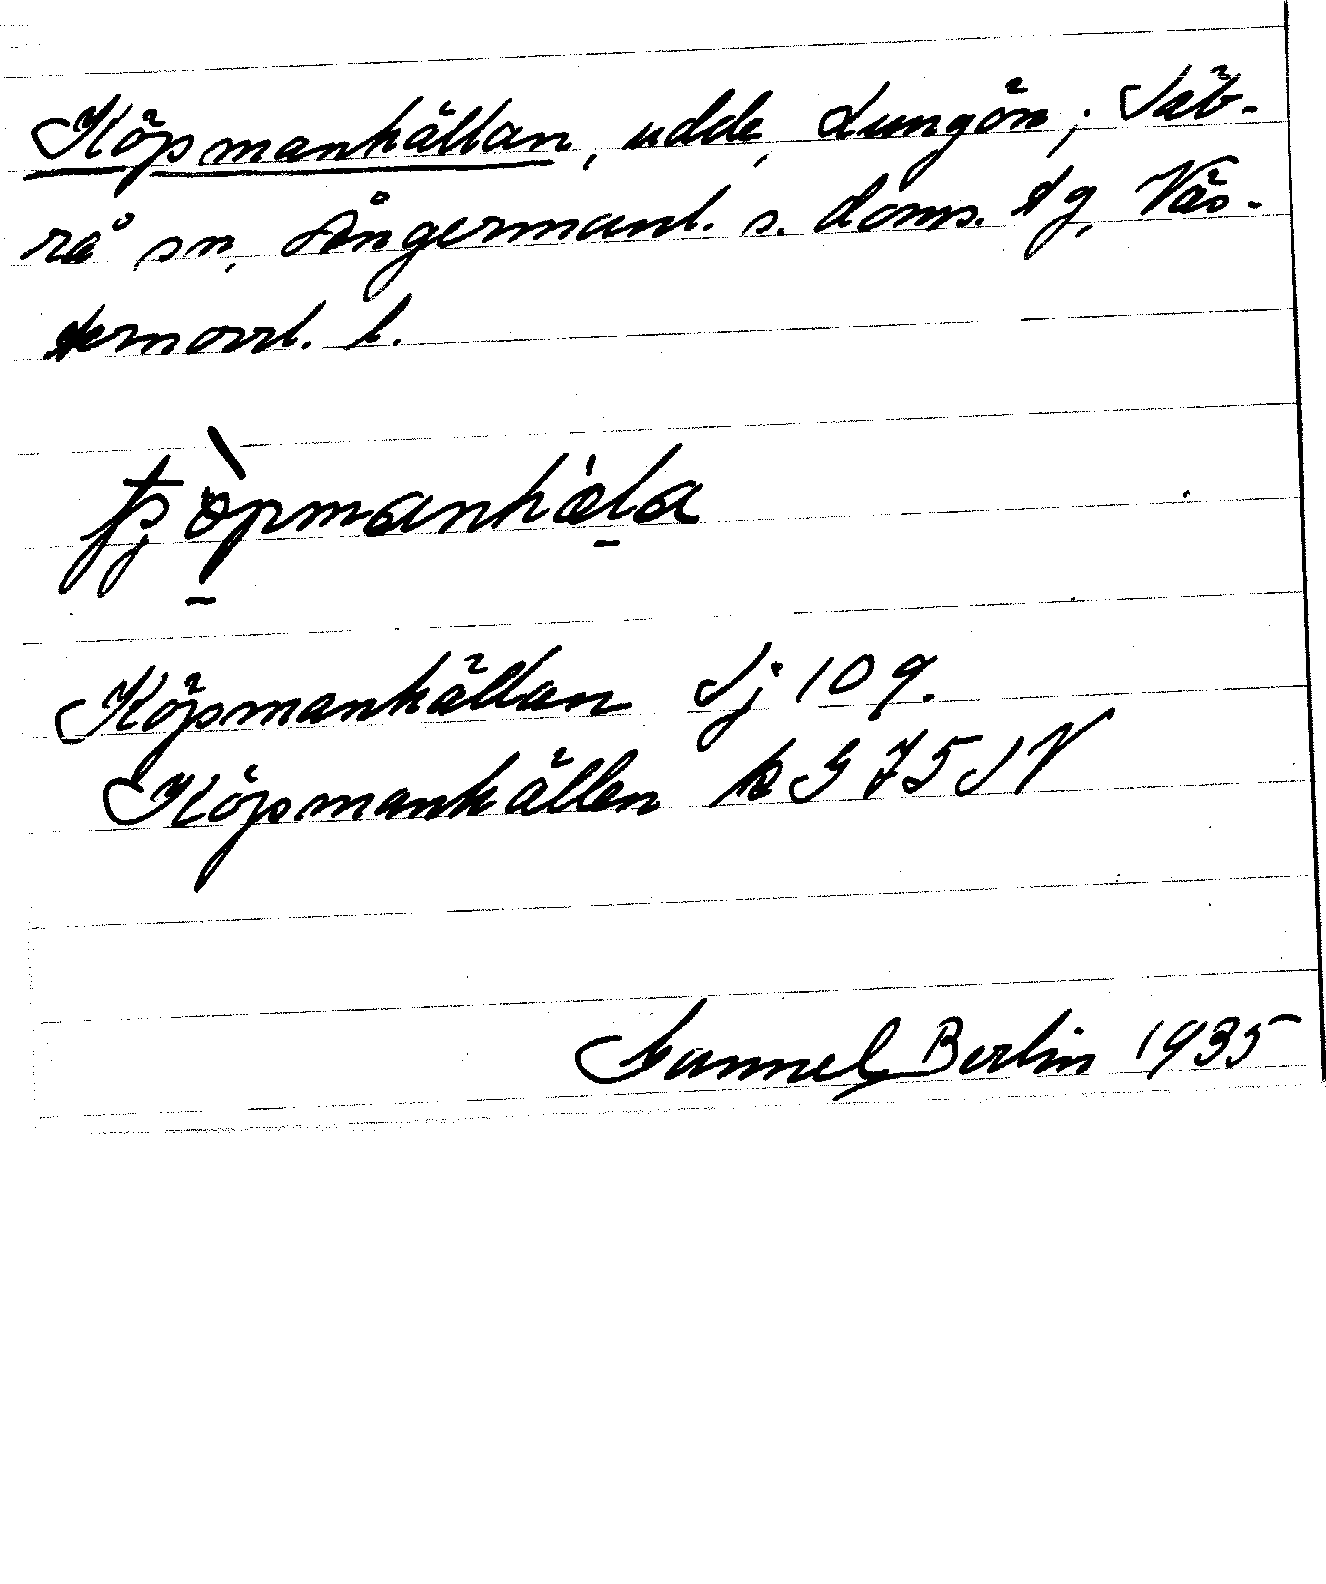 Köpmanhällan, udde, Lungön, Säb-
rå sn, Ångermanl. s. doms. tg, Väs-
ternorrl. l.
Köpmanhällan Sj 109.
Köpmanhällen kG 75 SV
Samuel Berlin 1935